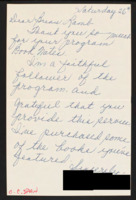 Saturday 26
Dear Brian Lamb
Thank you so much
for your program
Book Notes
I'm a faithful
follower of the
program and
grateful that you
provide this service
I've purchased some
of the books you've
featured
Sincerely